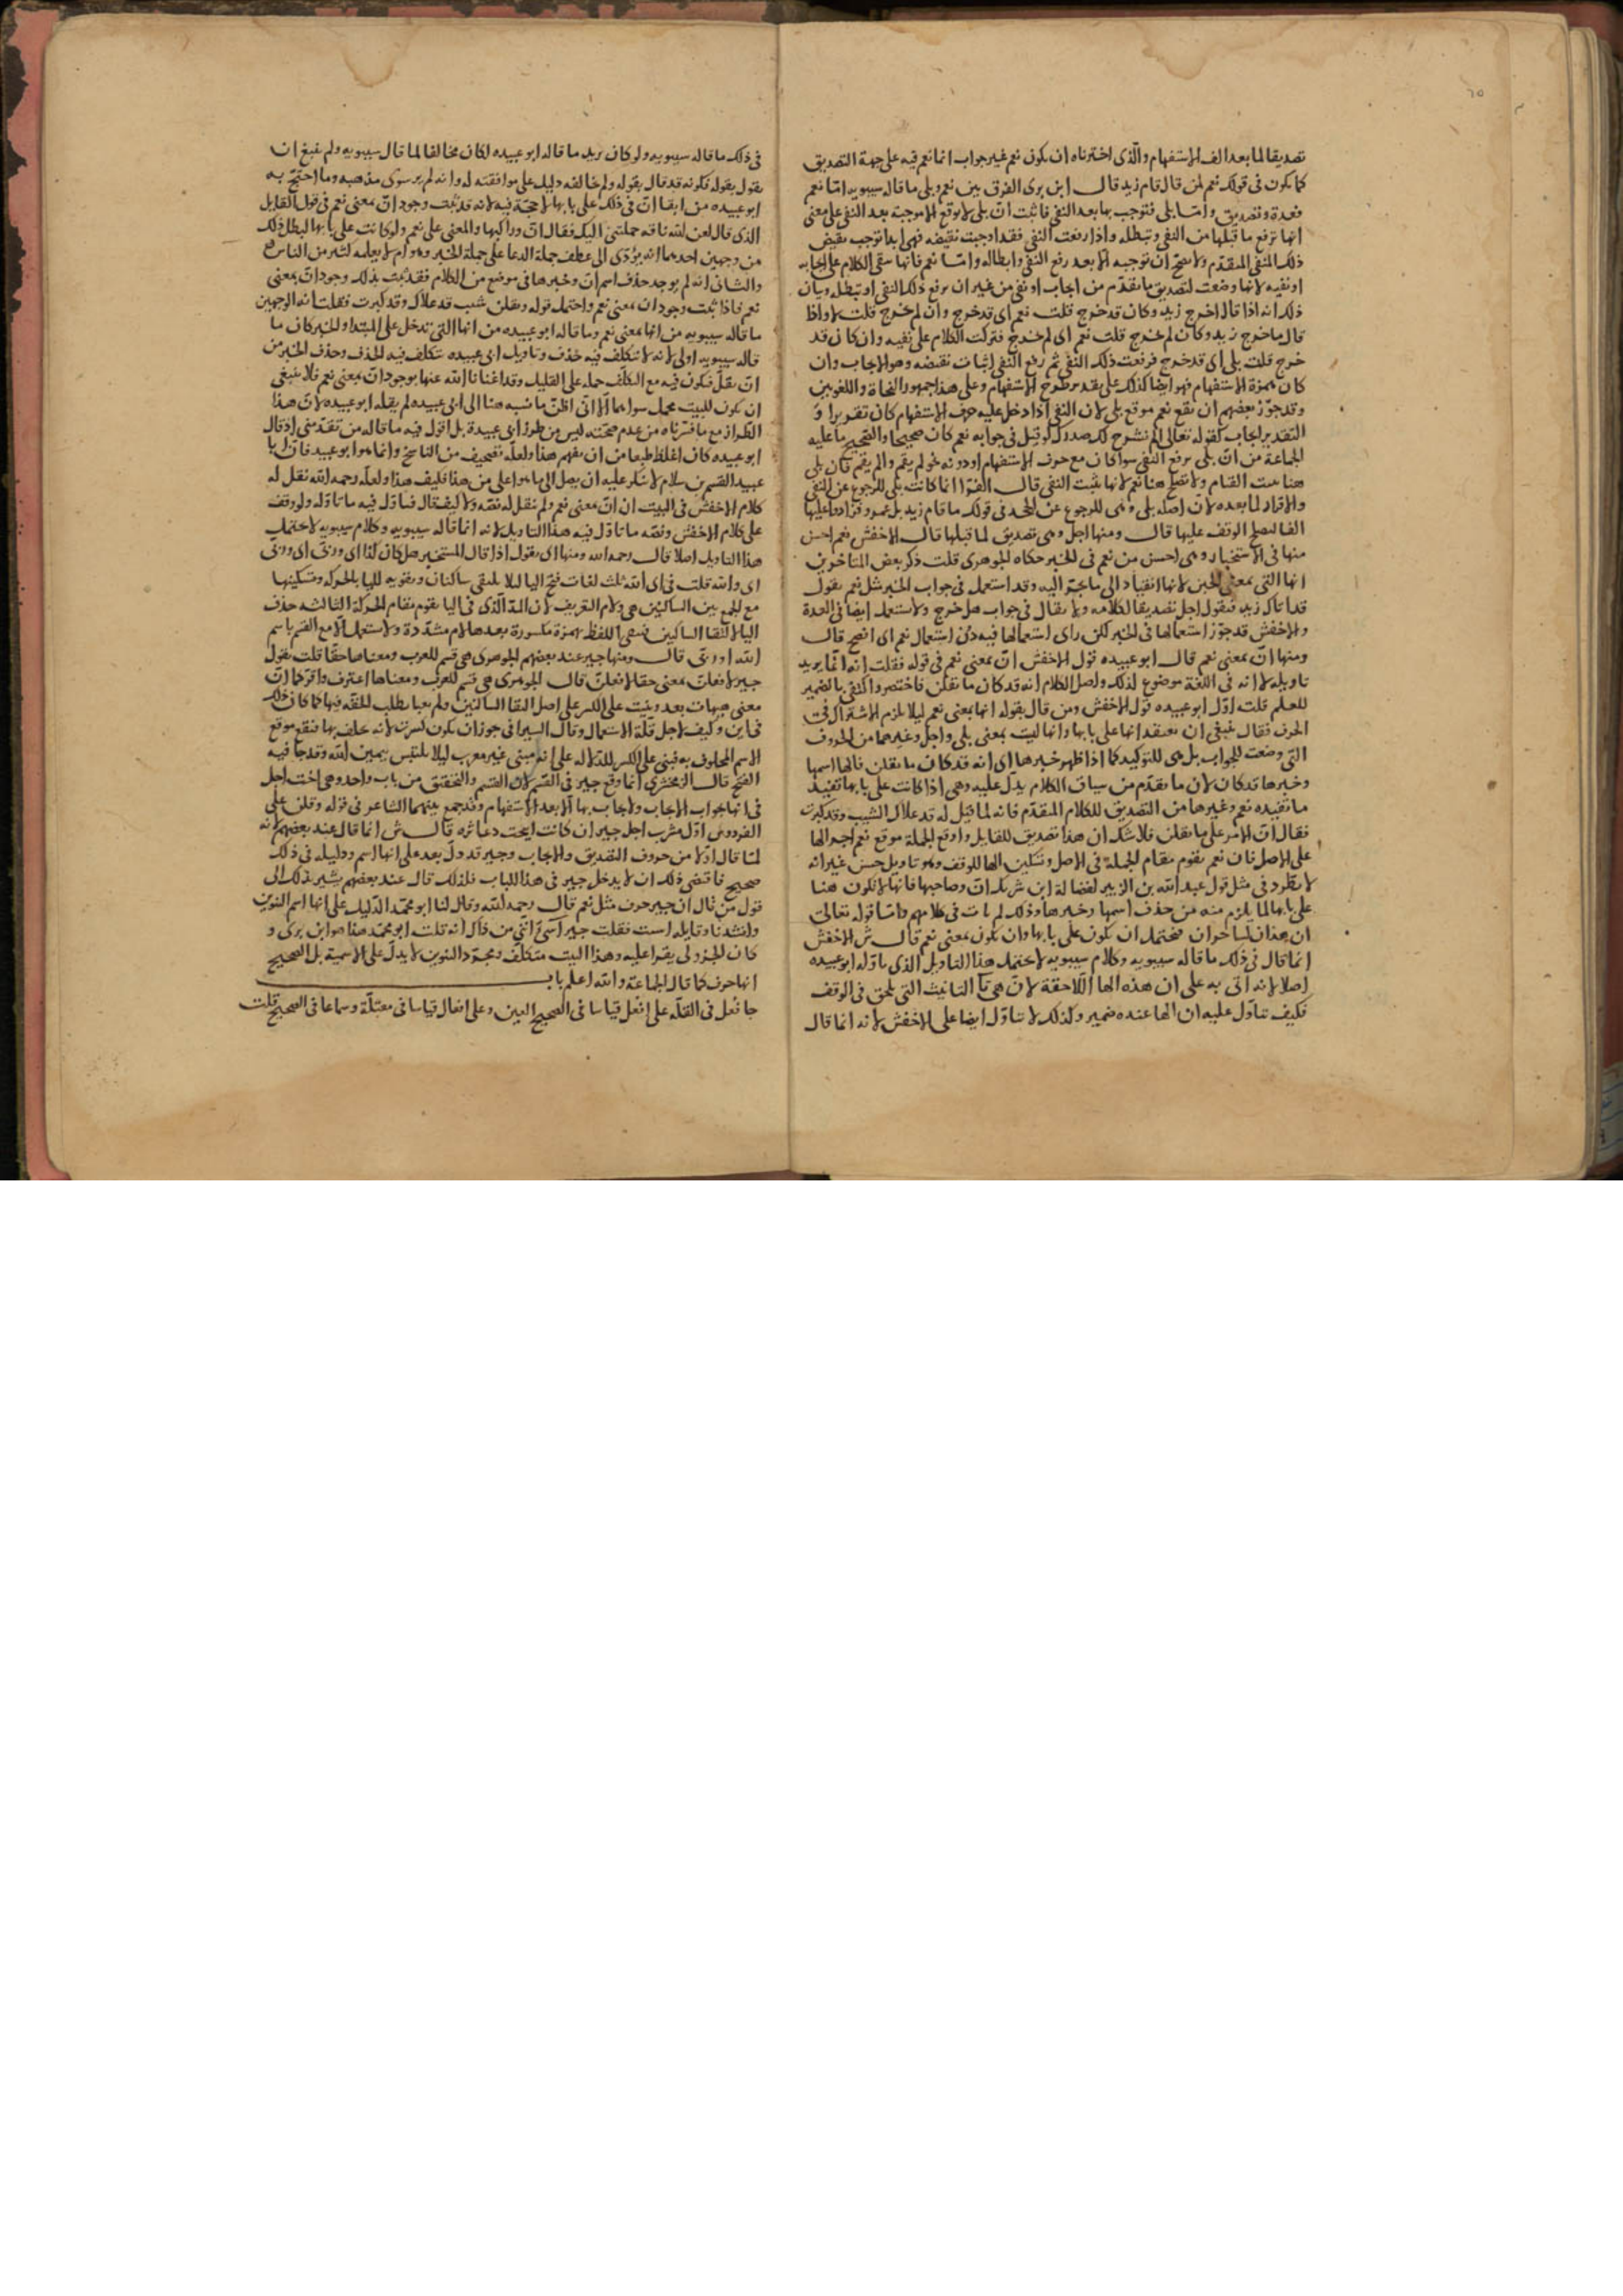 تصديقا لما بعد الف الاستفهام والذى اخترناه ان يكون نعم غير جواب انما نعم فيه على جهة التصديق
كما يكون فى قولك نعم لمن قال قام زيد قال ابن برى الفرق بين نعم وبلى ما قاله سيبويه اما نعم
فعدة وتصديق واما بلى فتوجب بها بعد النفى فاثبت ان بلى لا توقع الا موجبة بعد النفى على معنى
انها ترفع ما قبلها من النفى وتبطله واذا رفعت النفى فقد اوجبت نقيضه فهى ابدا توجب نقيض
ذلك المنفى المتقدم ولا يصح ان توجبه الا بعد رفع النفى وابطاله واما نعم فانها تبقى الكلام على ايجابه
او نفيه لانها وضعت لتصديق ما تقدم من ايجاب او نفى من غير ان ترفع ذلك النفى او تبطله وبيان
ذلك انه اذا قال اخرج زيد وكان قد خرج قلت نعم اى قد خرج وان لم يخرج قلت لا واذا
قال ما خرج زيد وكان لم يخرج قلت نعم اى لم يخرج فتركت الكلام على نفيه وان كان قد
خرج قلت بلى اى قد خرج فرفعت ذلك النفى ثم رفع النفى اثبات نقيضه وهو الايجاب وان
كان بهمزة الاستفهام فهو ايضا كذلك على تقدير طرح الاستفهام وعلى هذا جمهور النحاة واللغويين
وقد جوز بعضهم ان تقع نعم موقع بلى لان النفى اذا دخل عليه حرف الاستفهام كان تقريرا و
التقدير ايجاب كقوله تعالى الم نشرح لك صدرك لو قيل فى جوابه نعم كان صحيحا والصحيح ما عليه
الجماعة من ان بلى ترفع النفى سوا كان مع حرف الاستفهام او دونه نحو لم يقم والم يقم فان بلى
هنا تثبت القيام ولا تصلح هنا نعم لانها تثبت النفى قال الفرا انما كانت بلى للرجوع عن النفى
والاقرار لما بعده لان اصله بلى وهى للرجوع عن الجحد فى قولك ما قام زيد بل عمرو فزادوا عليها
الفا ليصلح الوقف عليها قال ومنها اجل وهى تصديق لما قبلها قال الاخفش نعم احسن
منها فى الاستخبار وهى احسن من نعم فى الخبر حكاه الجوهرى قلت ذكر بعض المتاخرين
انها التى بمعنى لانها انقياد الى ما يجر اليه وقد استعمل فى جواب الخبر مثل نعم يقول
قد اتاك زيد فتقول اجل تصديقا لكلامه ولا يقال فى جواب هل خرج ولا يستعمل ايضا فى العدة
والاخفش قد جوز استعمالها فى الخبر لكن راى استعمالها فيه دون استعمال نعم اى افصح قال
ومنها ان بمعنى نعم قال ابو عبيده قول الاخفش ان بمعنى نعم فى قوله فقلت انه انما يريد
تاويله لا انه فى اللغة موضوع لذلك واصل الكلام انه قد كان ما تقلن فاختصر واكتفى بالضمير
للعلم قلت اول ابو عبيده قول الاخفش ومن قال بقوله انها بمعنى نعم ليلا يلزم الاشتراك فى
الحرف فقال ينبغى ان نعتقد انها على بابها وانها ليست بمعنى بلى واجل وغيرهما من الحروف
التى وضعت للجواب بل هى للتوكيد كما اذا ظهر خبرها اى انه قد كان ما تقلن فالها اسمها
وخبرها قد كان لان ما تقدم من سياق الكلام يدل عليه وهى اذا كانت على بابها تفيد
ما تفيده نعم وغيرها من التصديق للكلام المتقدم فانه لما قيل له قد علاك الشيب وقد كبرت
فقال ان الامر على ما تقلن فلا شك ان هذا تصديق للقايل واوقع الجملة موقع نعم اجرا لها
على الاصل فان نعم يقوم مقام الجملة فى الاصل وتسكين الها للوقف وهو تاويل حسن غير انه
لا يطرد فى مثل قول عبد الله بن الزبير لفضالة ابن شريك ان وصاحبها فانها لا تكون هنا
على بابها لما يلزم منه من حذف اسمها وخبرها وذلك لم يات فى كلامهم واما قوله تعالى
ان هذان لساحران فيحتمل ان يكون على بابها وان يكون بمعنى نعم قال ش الاخفش
انما قال فى ذلك ما قاله سيبويه وكلام سيبويه لا يحتمل هذا التاويل الذى تاوله ابو عبيده
اصلا لانه اتى به على ان هذه الها اللاحقة لان هى تا التانيث التى تلحق فى الوقف
فكيف تناول عليه ان الها عنده ضمير وكذلك لا يتناول ايضا على الاخفش لانه انما قال
فى ذلك ما قاله سيبويه ولو كان يريد ما قاله ابو عبيده لكان مخالفا لما قال سيبويه ولم ينبغ ان
يقول بقوله فكونه قد قال بقوله ولم يخالفه دليل على موافقته له وانه لم ير سوى مذهبه وما احتج به
ابو عبيده من ابقا ان فى ذلك على بابها لا حجة فيه لانه قد ثبت وجود ان بمعنى نعم فى قول القايل
الذى قال لعن الله ناقه حملتنى اليك فقال ان وراكبها والمعنى على نعم ولو كانت على بابها لبطل ذلك
من وجهين احدهما انه يؤدى الى عطف جملة الدعا على جملة الخبر وهو امر لا يعلمه كثير من الناس
والثانى انه لم يوجد حذف اسم ان وخبرها فى موضع من الكلام فقد ثبت بذلك وجود ان بمعنى
نعم فاذا ثبت وجود ان بمعنى نعم واحتمل قوله ويقلن شيب قد علاك وقد كبرت فقلت انه الوجهين
ما قاله سيبويه من انها بمعنى نعم وما قاله ابو عبيده من انها التى تدخل على المبتدا والخبر كان ما
قاله سيبويه اولى لانه لا يتكلف فيه حذف وتاويل ابى عبيده يتكلف فيه الحذف وحذف الخبر من
ان يقل فيكون فيه مع التكلف حمله على القليل وقد اغنانا الله عنها بوجود ان بمعنى نعم فلا ينبغى
ان يكون للبيت محمل سواهما الا انى اظن ما نسبه هنا الى ابى عبيده لم يقله ابو عبيده لان هذا
الطراز مع ما قررناه من عدم صحته ليس من طرز ابى عبيدة بل اقول فيه ما قاله من تقدمنى اذ قال
ابو عبيده كان اغلظ طبعا من ان يفهم هذا ولعله تصحيف من الناسخ وانما هو ابو عبيد فان ابا
عبيد القسم بن سلام لا ينكر عليه ان يصل الى ما هو اعلى من هذا فكيف هذا ولعله رحمه الله نقل له
كلام الاخفش فى البيت ان ان بمعنى نعم ولم ينقل له نصه ولا كيف قال فتاول فيه ما تاوله ولو وقف
على كلام الاخفش ونصه ما تاول فيه هذا التاويل لانه انما قاله سيبويه وكلام سيبويه لا يحتمل
هذا التاويل اصلا قال رحمه الله ومنها اى يقول اذا قال المستخبر هل كان كذا اى وربى اى وربى
اى والله قلت فى اى الله ثلث لغات فتح اليا ليلا يلتقى ساكنان وتقويه لليا بالحركه وتسكينها
مع الجمع بين الساكنين هى ولام التعريف لان المد الذى فى اليا يقوم مقام الحركة الثالثه حذف
اليا لالتقا الساكنين فيبقى اللفظ بهمزة مكسورة بعدها لام مشددة ولا يستعمل الا مع القسم باسم
الله او ربى قال ومنها جير عند بعضهم الجوهرى هى قسم للعرب ومعناها حقا قلت يقول
جير لا فعلن بمعنى حقا لافعلن قال الجوهرى هى قسم للعرب ومعناها اعترف واقر كما ان
معنى هيهات بعد وبنيت على الكسر على اصل التقا الساكنين ولم يعبا بطلب للخفه فيها كما كان ذلك
فى اين وكيف لاجل قلة الاستعمال وقال السيرافى يجوز ان يكون كسرته لانه يحلف بها فتقع موقع
الاسم المحلوف به فبنى على الكسر للدلاله على انه مبنى غير معرب ليلا يلتبس بيمين الله وقد جا فيه
الفتح قال الزمخشرى انما وقع جير فى القسم لان القسم والتحقيق من باب واحد وهى اخت اجل
فى انها جواب الايجاب ولا يجاب بها الا بعد الاستفهام وقد جمع بينهما الشاعر فى قوله وقلن على
الفردوس اول مشرب اجل جير ان كانت ابيحت دعاثره قال ش انما قال عند بعضهم لانه
لما قال اولا من حروف التصديق والايجاب وجير قد دل بعد على انها اسم ودليله فى ذلك
صحيح فاقتضى ذلك ان لا يدخل جير فى هذا الباب فلذلك قال عند بعضهم يشير بذلك الى
قول من قال ان جير حرف مثل نعم قال رحمه الله وقال لنا ابو محمد الدليل على انها اسم التنوين
وانشدنا وقايله اسيت فقلت جير اسى اننى من ذاك انه قلت ابو محمد هذا هو ابن برى و
كان الجزولى يقرا عليه وهذا البيت متكلف ومجرد التنوين لا يدل على الاسمية بل الصحيح
انها حرف كما قال الجماعة والله اعلم باب
جا فعل فى القلة على افعل قياسا فى الصحيح العين وعلى افعال قياسا فى معتله وسماعا فى الصحيح قلت